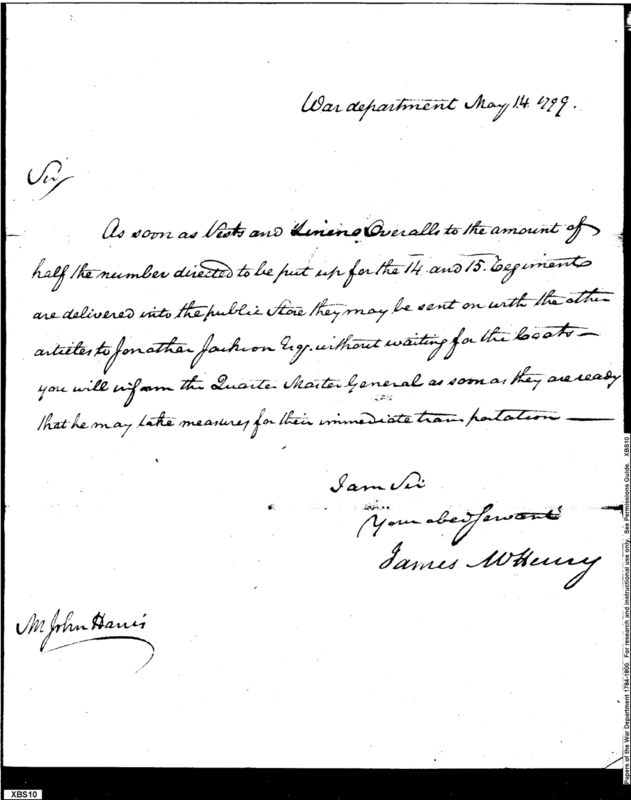 War department May 14. 1799.
Sir
As soon as Vests and Linen Overalls to the amount of
half the number directed to be put up for the 14 and 15. Regiments
are delivered into the public Store they may be sent on with the other
articles to Jonathan Jackson Esqr. without waiting for the Coats—
you will inform the Quarter Master General as soon as they are ready
that he may take measures for their immediate transportation —
I am Sir
Your obed Servant
James McHenry
Mr John Harris
XBS10
Papers of the War Department 1784-1800. For research and instructional use only. See Permissions Guide. XBS10